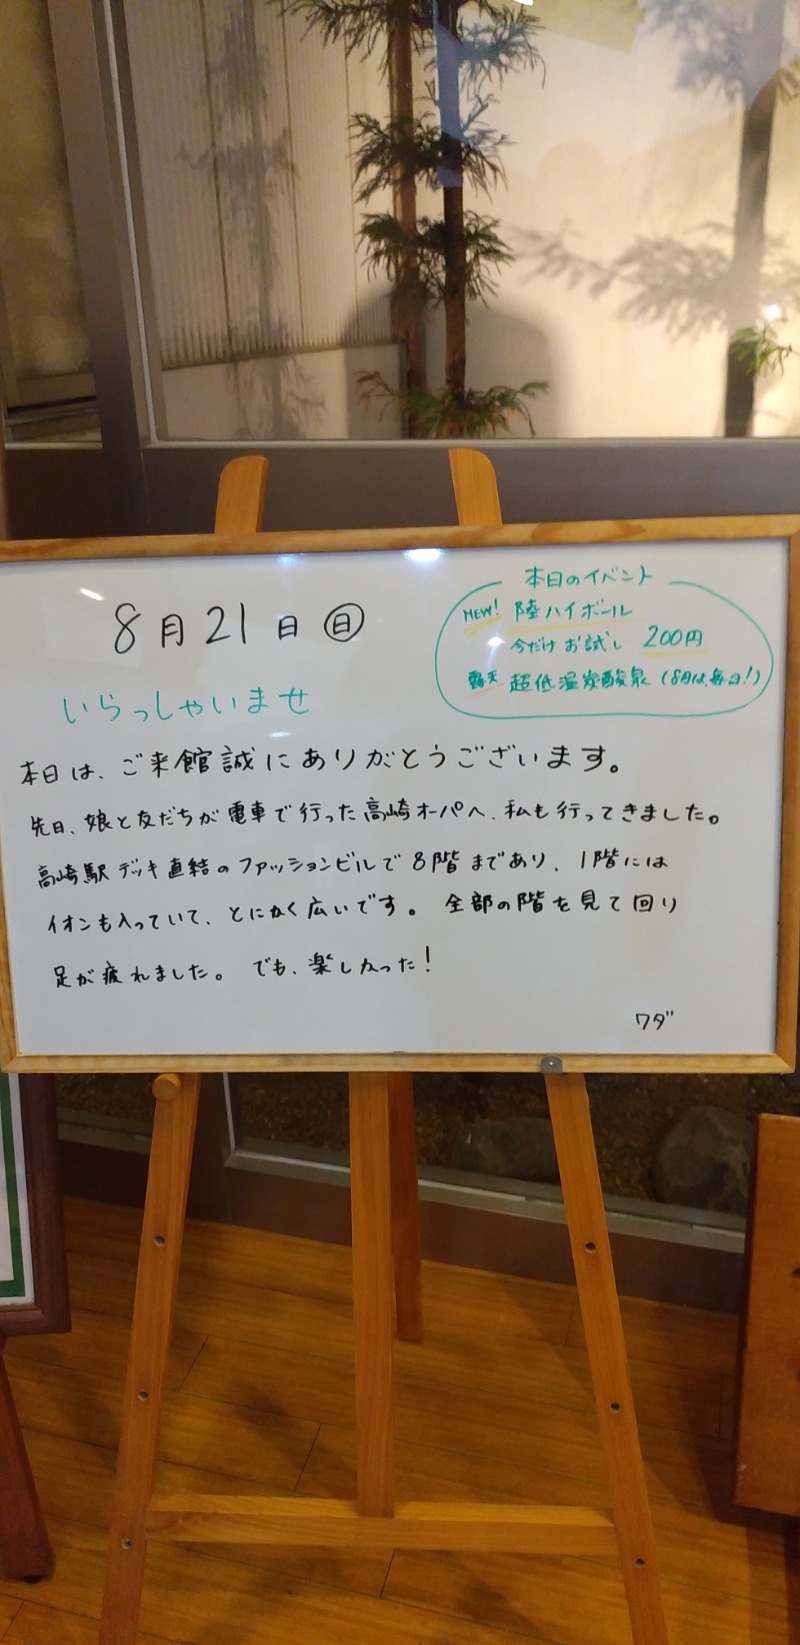 8月21日㊐
本日のイベント
NEW! 陸ハイボール
今だけお試し 200円
露天 超低温炭酸泉(8月は、毎日!)
いらっしゃいませ
本日は、ご来館誠にありがとうございます。
先日、娘と友だちが電車で行った高崎オーパへ、私も行ってきました。
高崎駅デッキ直結のファッションビルで8階まであり、1階には
イオンも入っていて、とにかく広いです。 全部の階を見て回り
足が疲れました。 でも、楽しかった!
ワダ